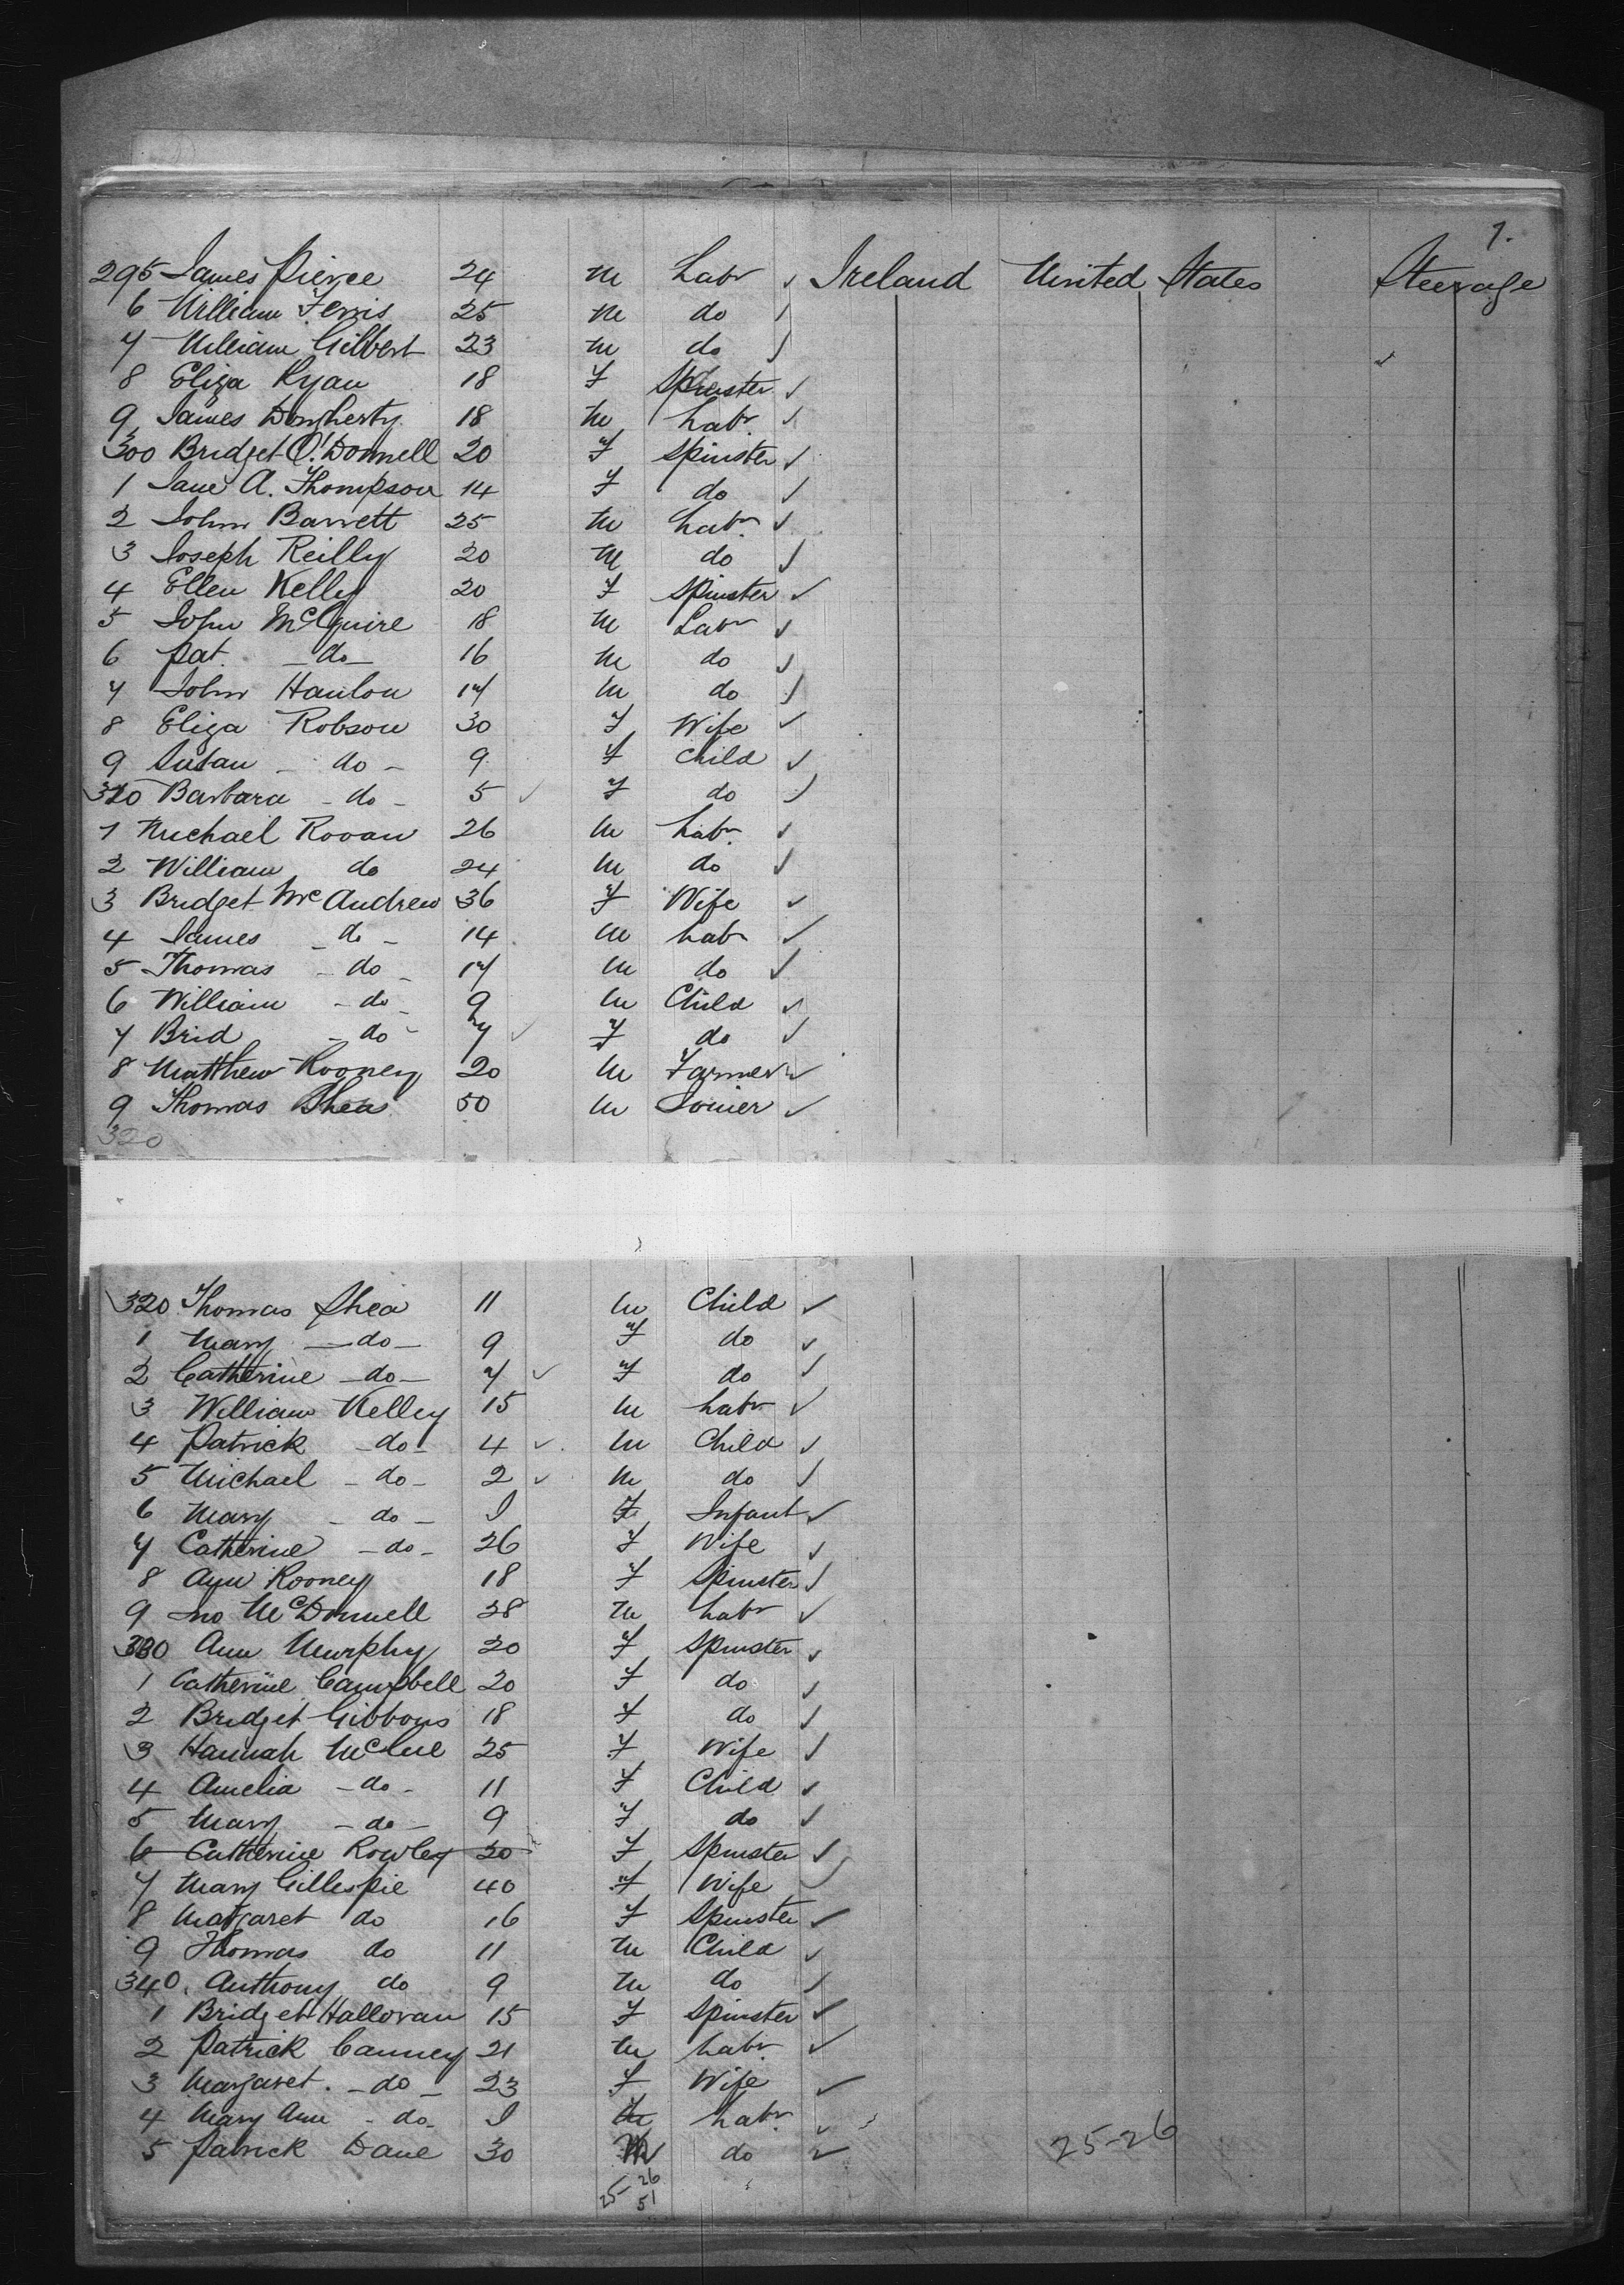 7.
295 James Pierce 24 M Labr ✓ Ireland United States Steerage
6 William Ferris 25 M do ✓
7 William Gilbert 23 M do ✓
8 Eliza Ryan 18 F Spinster ✓
9 James Dougherty 18 M Labr. ✓
300 Bridget O'Donnell 20 F Spinster ✓
1 Jane A. Thompson 14 F do ✓
2 John Barrett 25 M Labr. ✓
3 Joseph Reilly 20 M do ✓
4 Ellen Kelly 20 F Spinster ✓
5 John McGuire 18 M Labr ✓
6 Pat. - do - 16 M do ✓
7 John Hanlon 17 M do ✓
8 Eliza Robson 30 F Wife ✓
9 Susan - do - 9 F Child ✓
310 Barbara - do - 5 ✓ F do ✓
1 Michael Rovan 26 M Labr. ✓
2 William do 24 M do ✓
3 Bridget McAndrew 36 F Wife ✓
4 James - do - 14 M Labr ✓
5 Thomas - do - 17 M do ✓
6 William - do - 9 M Child ✓
7 Brid - do - 7 ✓ F do ✓
8 Matthew Rooney 20 M Farmer ✓
9 Thomas Shea 50 M Joiner ✓
320
320 Thomas Shea 11 M Child ✓
1 Mary - do - 9 F do ✓
2 Catherine - do - 7 ✓ F do ✓
3 William Kelley 15 M Labr ✓
4 Patrick - do - 4 ✓ M Child ✓
5 Michael - do - 2 ✓ M do ✓
6 Mary - do - I F Infant ✓
7 Catherine - do - 26 F Wife ✓
8 Ann Rooney 18 F Spinster ✓
9 Jno McDonnell 28 M Labr ✓
330 Ann Murphy 20 F Spinster ✓
1 Catherine Campbell 20 F do ✓
2 Bridget Gibbons 18 F do ✓
3 Hannah McCue 25 F Wife ✓
4 Amelia - do - 11 F Child ✓
5 Mary - do - 9 F do ✓
6 Catherine Rowley 20 F Spinster ✓
7 Mary Gillespie 40 F Wife ✓
8 Margaret do 16 F Spinster ✓
9 Thomas do 11 M Child ✓
340. Anthony do 9 M do ✓
1 Bridget Halloran 15 F Spinster ✓
2 Patrick Canney 21 M Labr. ✓
3 Margaret. - do - 23 F Wife ✓
4 Mary Ann - do - I Labr. ✓
5 Patrick Dane 30 M do ✓ 25-26
25 26
51